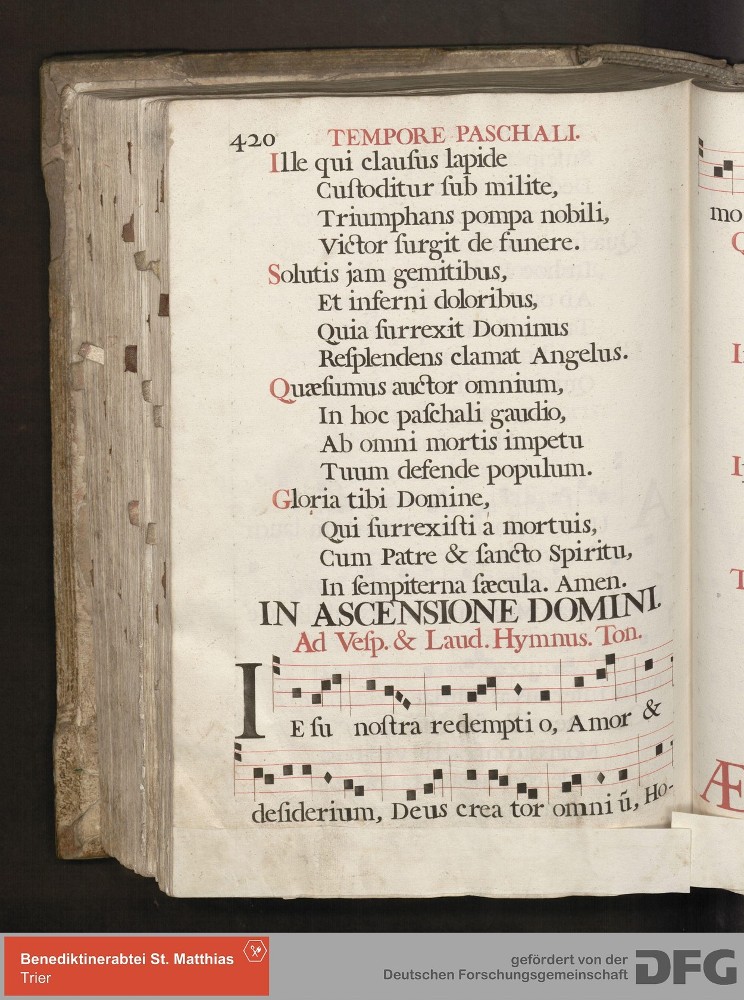 420 TEMPORE PASCHALI.
Ille qui clauſus lapide
Cuſtoditur ſub milite,
Triumphans pompa nobili,
Victor ſurgit de funere.
Solutis jam gemitibus,
Et inferni doloribus,
Quia ſurrexit Dominus
Reſplendens clamat Angelus.
Quæſumus auctor omnium,
In hoc paſchali gaudio,
Ab omni mortis impetu
Tuum defende populum.
Gloria tibi Domine,
Qui ſurrexiſti à mortuis,
Cum Patre & ſancto Spiritu,
In ſempiterna ſæcula. Amen.
IN ASCENSIONE DOMINI.
Ad Veſp. & Laud. Hymnus. Ton.
IEſu noſtra redempti o, Amor &
deſiderium, Deus crea tor omni ũ, Ho-
mo
Æ
Benediktinerabtei St. Matthias
Trier
gefördert von der
Deutschen Forschungsgemeinschaft
DFG